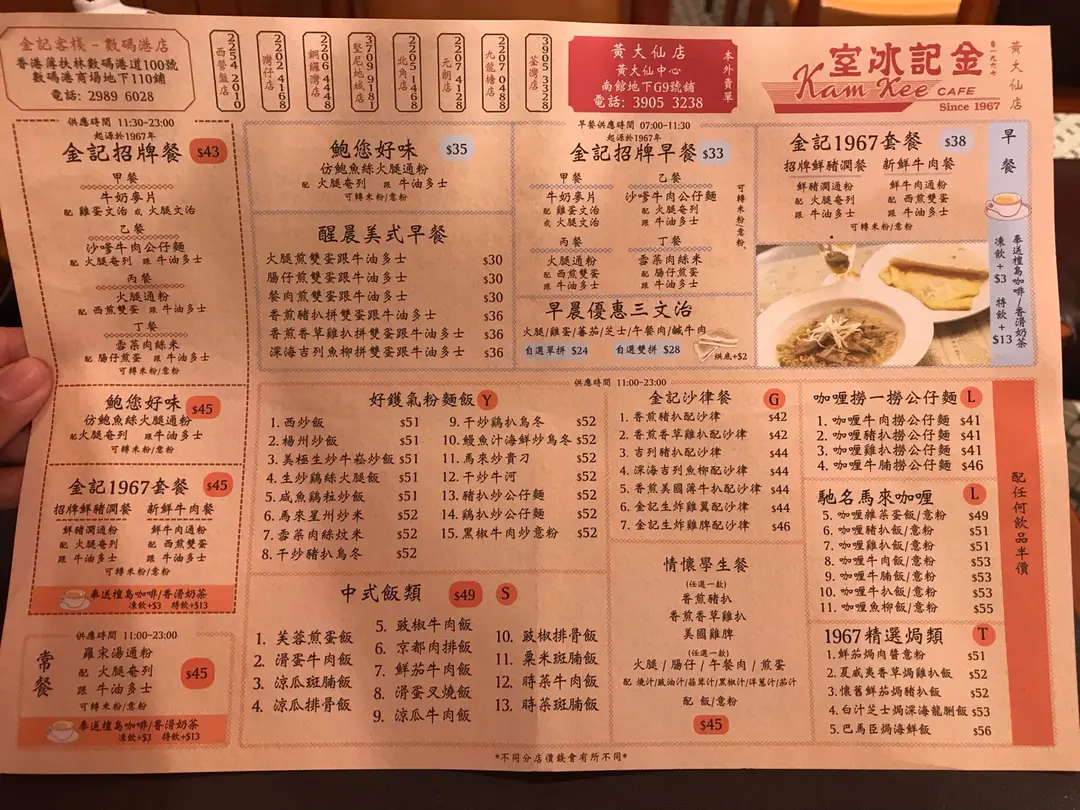 金記客棧 - 數碼港店
香港薄扶林數碼港道100號
數碼港商場地下110鋪
電話: 2989 6028
西餐盤店 2254 2010
灣仔店 2202 4168
銅鑼灣店 2206 4448
堅尼地城店 3709 9181
北角店 2205 4468
元朗店 2207 4128
九龍塘店 2202 4468
荃灣店 3905 3328
黃大仙店
黃大仙中心
南館地下G9號鋪
電話: 3905 3238
本外賣單
室冰記金
自一九六七
Kam Kee CAFE
Since 1967
黃大仙店
供應時間 11:30-23:00
起源於1967年
金記招牌餐 $43
甲餐
牛奶麥片
配 雞蛋文治 或 火腿文治
乙餐
沙嗲牛肉公仔麵
配 火腿奄列 跟 牛油多士
丙餐
火腿通粉
配 西煎雙蛋 跟 牛油多士
丁餐
雪菜肉絲米
配 腸仔煎蛋 跟 牛油多士
可轉米粉/意粉
鮑您好味 $45
仿鮑魚絲火腿通粉
配火腿奄列 跟牛油多士
可轉米粉/意粉
金記1967套餐 $45
招牌鮮豬潤餐 新鮮牛肉餐
鮮豬潤通粉 鮮牛肉通粉
配 火腿奄列 配 西煎雙蛋
跟 牛油多士 跟 牛油多士
可轉米粉/意粉
奉送檀島咖啡/香滑奶茶
凍飲+$3 特飲+$13
供應時間 11:00-23:00
常餐
羅宋湯通粉
配 火腿奄列
跟 牛油多士
可轉米粉/意粉
$45
奉送檀島咖啡/香滑奶茶
凍飲+$3 特飲+$13
鮑您好味 $35
仿鮑魚絲火腿通粉
配 火腿奄列 跟 牛油多士
可轉米粉/意粉
醒晨美式早餐
火腿煎雙蛋跟牛油多士 $30
腸仔煎雙蛋跟牛油多士 $30
餐肉煎雙蛋跟牛油多士 $30
香煎豬扒拼雙蛋跟牛油多士 $36
香煎香草雞扒拼雙蛋跟牛油多士 $36
深海吉列魚柳拼雙蛋跟牛油多士 $36
早餐供應時間 07:00-11:30
起源於1967年
金記招牌早餐 $33
甲餐 乙餐
牛奶麥片 沙嗲牛肉公仔麵
配 雞蛋文治 配 火腿奄列
或 火腿文治 跟 牛油多士
丙餐 丁餐
火腿通粉 雪菜肉絲米
配 西煎雙蛋 配 腸仔煎蛋
跟 牛油多士 跟 牛油多士
可轉米粉/意粉
早晨優惠三文治
火腿/雞蛋/蕃茄/芝士/午餐肉/鹹牛肉
自選單拼 $24 自選雙拼 $28
烘底+$2
金記1967套餐 $38
招牌鮮豬潤餐 新鮮牛肉餐
鮮豬潤通粉 鮮牛肉通粉
配 火腿奄列 配 西煎雙蛋
跟 牛油多士 跟 牛油多士
可轉米粉/意粉
早餐
奉送檀島咖啡/香滑奶茶
凍飲+$3 特飲+$13
供應時間 11:00-23:00
好鑊氣粉麵飯 Y
1. 西炒飯 $51
2. 楊州炒飯 $51
3. 美極生炒牛崧炒飯 $51
4. 生炒鷄絲火腿飯 $51
5. 咸魚鷄粒炒飯 $51
6. 馬來星州炒米 $52
7. 雪菜肉絲炆米 $52
8. 干炒豬扒烏冬 $52
9. 干炒鷄扒烏冬 $52
10. 鰻魚汁海鮮炒烏冬 $52
11. 馬來炒貴刁 $52
12. 干炒牛河 $52
13. 豬扒炒公仔麵 $52
14. 鷄扒炒公仔麵 $52
15. 黑椒牛肉炒意粉 $52
中式飯類 $49 S
1. 芙蓉煎蛋飯
2. 滑蛋牛肉飯
3. 涼瓜斑腩飯
4. 涼瓜排骨飯
5. 豉椒牛肉飯
6. 京都肉排飯
7. 鮮茄牛肉飯
8. 滑蛋叉燒飯
9. 涼瓜牛肉飯
10. 豉椒排骨飯
11. 粟米斑腩飯
12. 時菜牛肉飯
13. 時菜斑腩飯
金記沙律餐 G
1. 香煎豬扒配沙律 $42
2. 香煎香草雞扒配沙律 $42
3. 吉列豬扒配沙律 $44
4. 深海吉列魚柳配沙律 $44
5. 香煎美國薄牛扒配沙律 $44
6. 金記生炸雞翼配沙律 $44
7. 金記生炸雞脾配沙律 $46
情懷學生餐
(任選一款)
香煎豬扒
香煎香草雞扒
美國雞脾
(任選一款)
火腿 / 腸仔 / 午餐肉 / 煎蛋
配 燒汁/豉油汁/蒜茸汁/黑椒汁/洋蔥汁/茄汁
配 飯/意粉
$45
咖喱撈一撈公仔麵 L
1. 咖喱牛肉撈公仔麵 $41
2. 咖喱豬扒撈公仔麵 $41
3. 咖喱雞扒撈公仔麵 $41
4. 咖喱牛腩撈公仔麵 $46
馳名馬來咖喱 L
5. 咖喱雜菜蛋飯/意粉 $49
6. 咖喱豬扒飯/意粉 $51
7. 咖喱雞扒飯/意粉 $51
8. 咖喱牛肉飯/意粉 $53
9. 咖喱牛腩飯/意粉 $53
10. 咖喱牛扒飯/意粉 $53
11. 咖喱魚柳飯/意粉 $55
1967精選焗類 T
1. 鮮茄焗肉醬意粉 $51
2. 夏威夷香草焗雞扒飯 $52
3. 懷舊鮮茄焗豬扒飯 $52
4. 白汁芝士焗深海龍脷飯 $53
5. 巴馬臣焗海鮮飯 $56
配任何飲品半價
*不同分店價錢會有所不同*